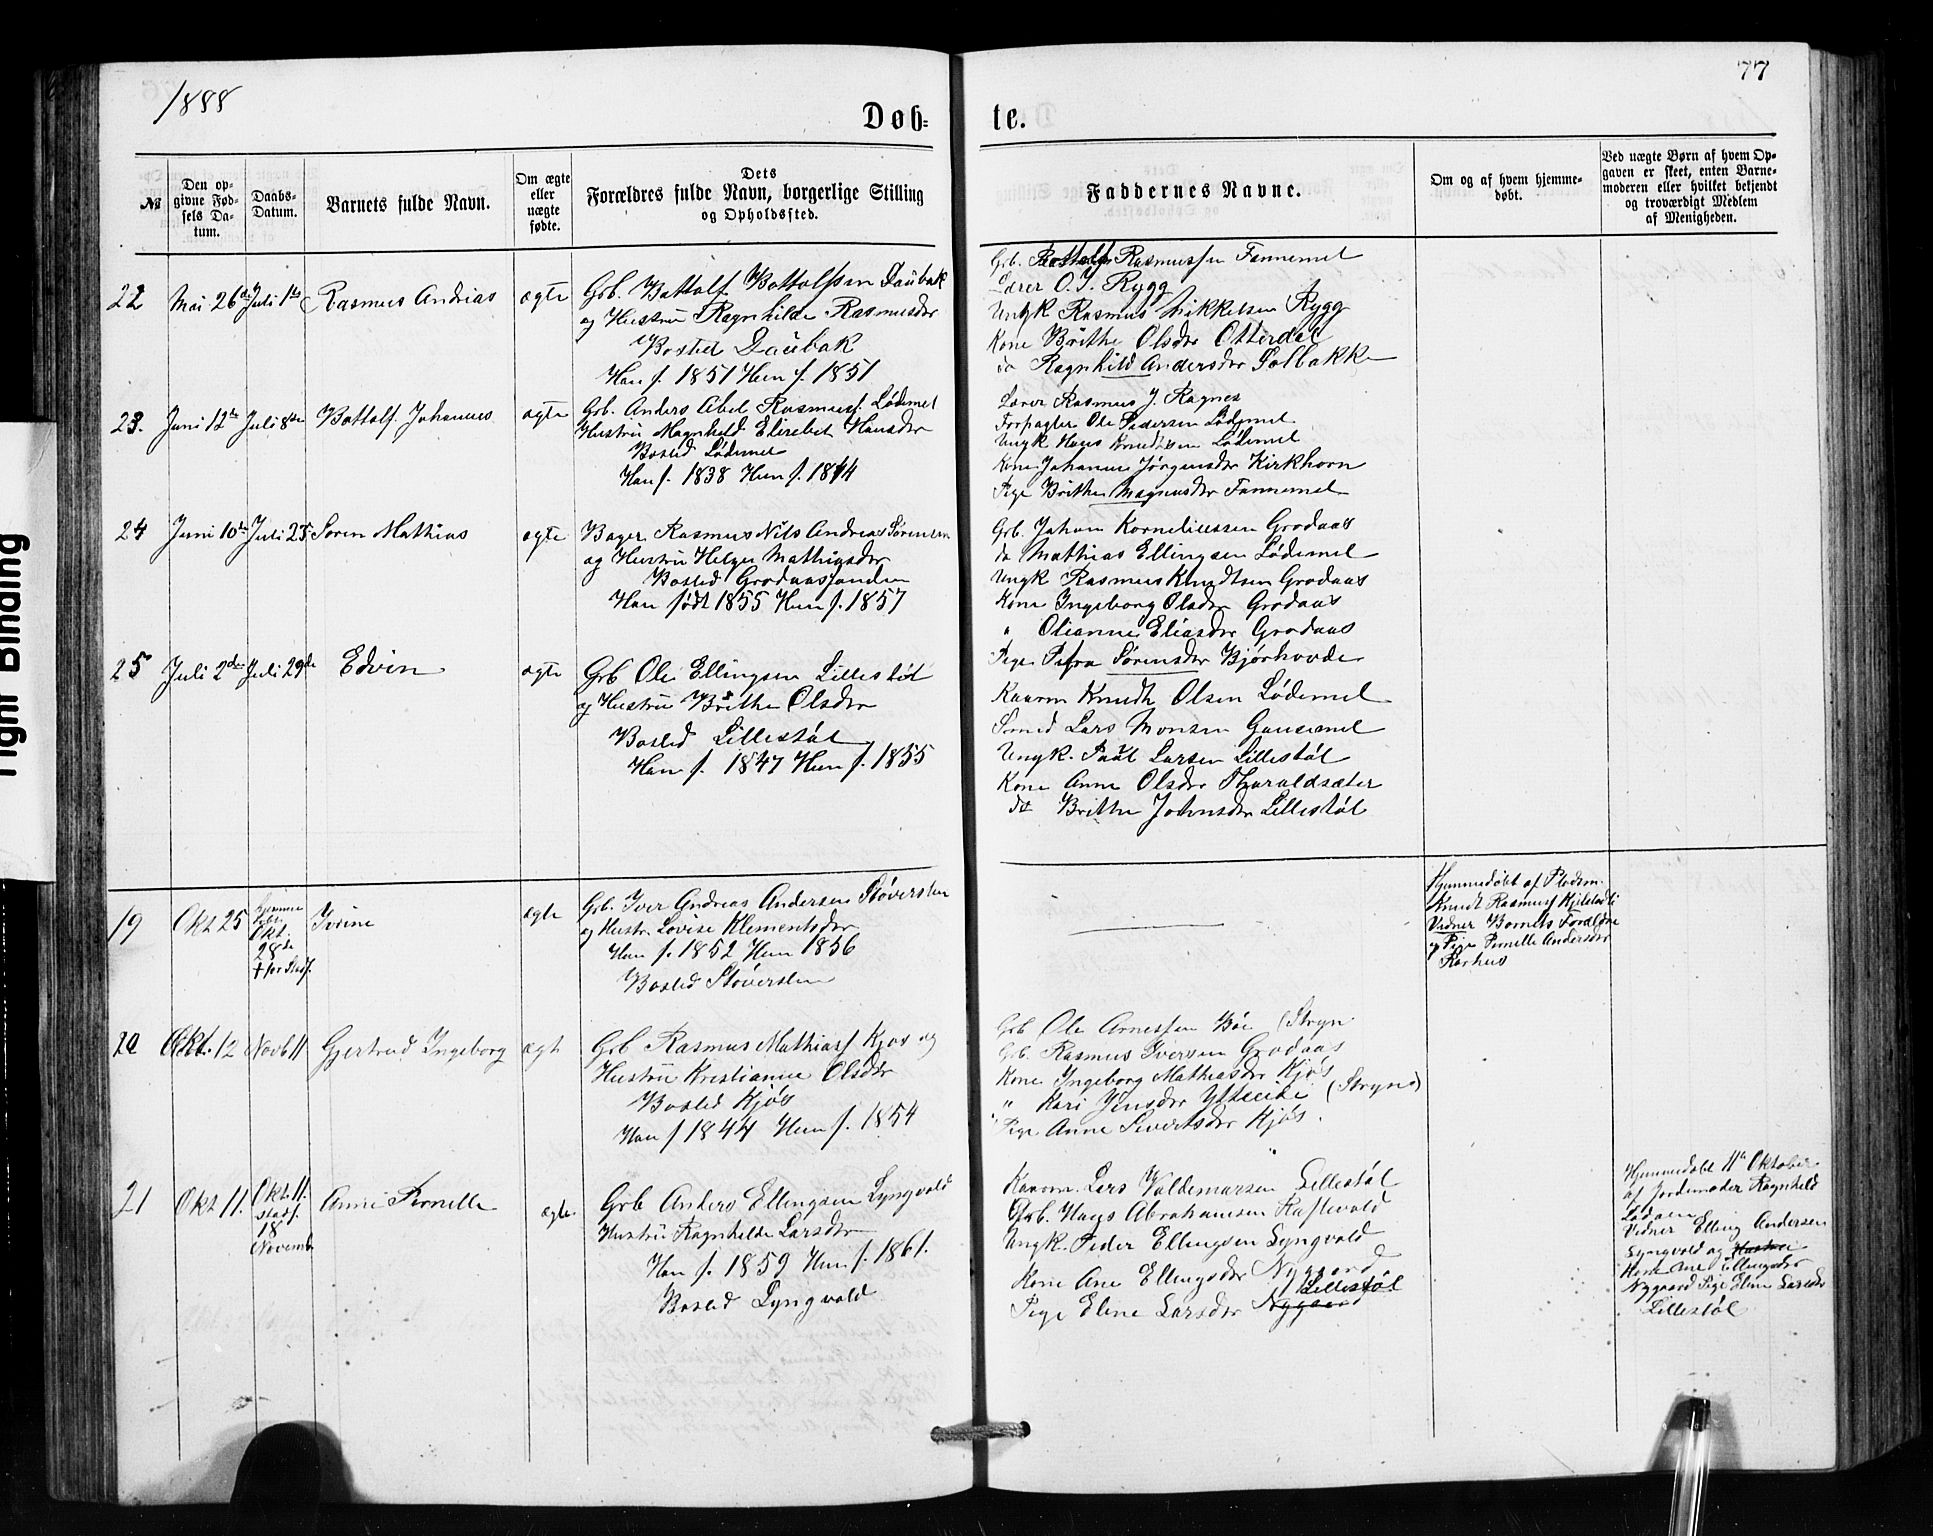 1888
77
Døb-
te.
№
Den op-
givne Fød-
sels Da-
tum.
Daabs-
Datum.
Barnets fulde Navn.
Om ægte
eller
uægte
fødte.
Dets
Forældres fulde Navn, borgerlige Stilling
og Opholdssted.
Faddernes Navne.
Om og af hvem hjemme-
døbt.
Ved uægte Børn af hvem Op-
gaven er skeet, enten Barne-
moderen eller hvilket bekjendt
og troværdigt Medlem
af Menigheden.
22
Mai 26de
Juli 1ste
Rasmus Andrias
ægte
Grb. Bottolf Bottolfsen Daubak
og Hustru Ragnhilde Rasmusdr
Bosted Daubak
Han f. 1851 Hun f. 1851
Grb. Bottolf Rasmussen Fannemel
Lærer O. J. Rygg
Ungk Rasmus Mikkelsen Rygg
Kone Brithe Olsdr Otterdal
do Ragnhild Andersdr Solbakk
23.
Juni 12te
Juli 8de
Bottolf Johannes
ægte
Grb. Anders Abel Rasmusf. Lødemel
Hustru Magnhild Elisebet Hansdr
Bosted Lødemel
Han f. 1838 Hun f. 1844
Lærer Rasmus J. Ragnes
Forpagter Ole Pedersen Lødemel
Ungk Hans Knudtsen Lødemel
Kone Johanne Jørgensdr Kirkhorn
Pige Brithe Magnusdr Fannemel
24
Juni 10de
Juli 25
Søren Mathias
ægte
Bager Rasmus Nils Andreas Sørensen
og Hustru Helga Mathiasdr
Bosted Grodaasstranden
Han født 1855 Hun f. 1857
Grb. Johan Korneliussen Grodaas
do Mathias Ellingsen Lødemel
Ungk Rasmus Knudtsen Grodaas
Kone Ingeborg Olsdr Grodaas
" Olianne Eliasdr Grodaas
Pige Petra Sørensdr Bjørhovde
25
Juli 2den
Juli 29de
Edvin
ægte
Grb Ole Ellingsen Lillestøl
og Hustru Brithe Olsdr
Bosted Lillestøl
Han f. 1847 Hun f. 1855
Kaarm Knudt Olsen Lødemel
Smed Lars Monsen Gausemel
Ungk. Paul Larsen Lillestøl
Kone Anne Olsdr Haraldsæter
do Brithe Johnsdr Lillestøl
19
Okt 25
hjemme
døbt
Okt.
28de
† før Stadf.
Ivrine
ægte
Grb. Iver Andreas Andersen Støversten
og Hustr. Lovise Klementsdr
Han f. 1852 Hun 1856
Bosted Støversten
Hjemmedøbt af Pladsm.
Knudt Rasmusf Kjilstadli
Vidner Barnets Forældre
og Pige Pernille Andersdr
Rarhus
20
Okt. 12
Novb 11
Gjertrud Ingeborg
ægt
Grb Rasmus Mathiasf Kjøs og
Hustru Kristianne Olsdtr
Bosted Kjøs
Han f 1844 Hun f. 1854
Grb Ole Arnessen Bøe (Stryn
Grb. Rasmus Iversen Grodaas
Kone Ingeborg Mathiasdr Kjøs
" Kari Jensdr Ytreeide (Stryn)
Pige Anne Sivertsdr Kjøs.
21
Okt 11.
Okt. 11.
stadf.
18
Novemb
Anne Pernille
ægte
Grb Anders Ellingsen Lyngvold
Hustru Ragnhilde Larsdr
Han f. 1859 Hun f. 1861.
Bosted Lyngvold
Kaarm. Lars Valdemarsen Lillestøl
Grb. Hans Abrahamsen Raftevold
Ungk. Peder Ellingsen Lyngvold
Kone Ane Ellingsdr Nygaard
Lillestøl
Pige Eline Larsdr Nygaard
Hjemmedøbt 11te Oktober
af Jordemoder Ragnhild
Vidner Elling Andersen
Lyngvold og Hustru
Kone Ane Ellingsdr
Nygaard Pige Eline Larsdr
Lillestøl
Tight Binding